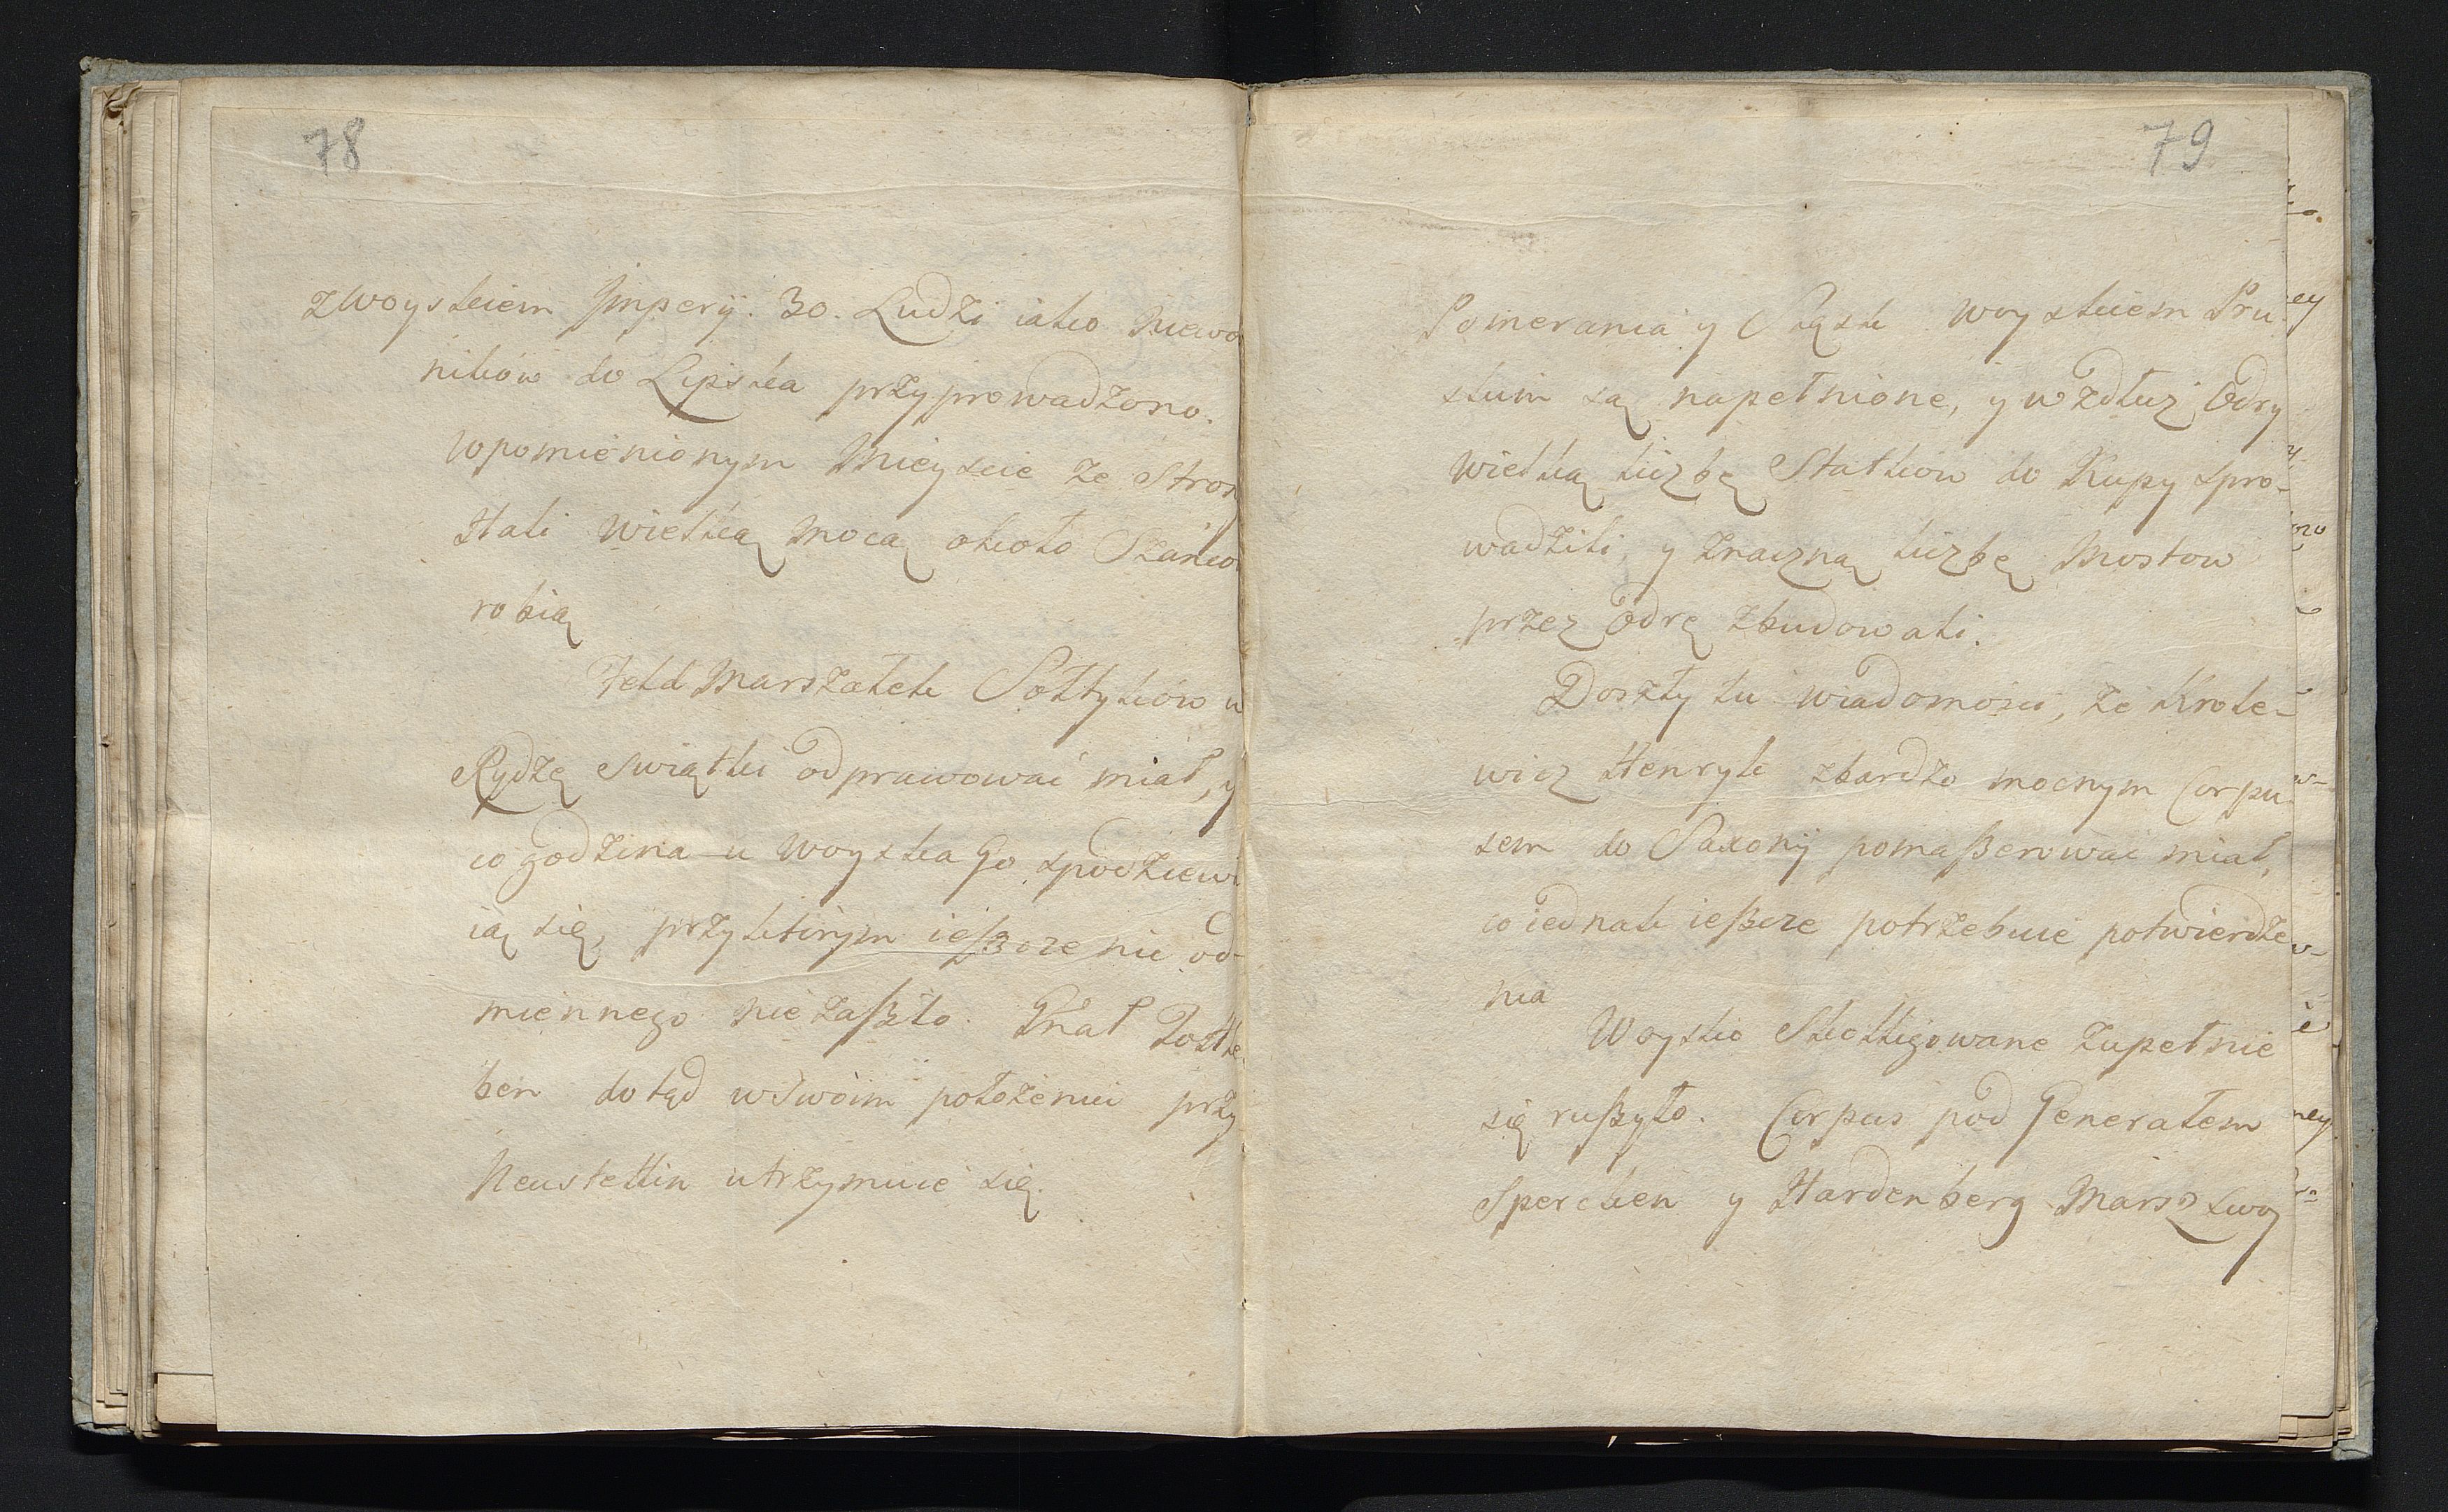 78
z Woyskiem Imperÿ. 30. Ludzi iako Niewo
nikow do Lipska przyprowadzono.
Wpomienionym Mieyscie ze Stron
Hali wielką Mocą około Szańcow
robią
Feld Marszałek Sołtykow w
Rydze swiątki odprawowac miał, y
co godzina u Woyska go spodziewa
ią się, przyktorym ießcze nic od-
miennego nie zaßło. Gnał Tottle
ben dotąd w Swoim położeniu przy
Neustettin utrzymuie się.
79
Pomerania y Sląsk Woyskiem Pru-
skim są napełnione, y wzdłuż Odry
wielką liczbę Statkow do Kupy spro-
wadzili y znaczną liczbę Mostow
przez Odrę zbudowali.
Doszły tu wiadomosci, że Krole-
wicz Henryk zbardzo mocnym Corpu-
sem do Saxonÿ pomaßerowac miał,
co iednak ießcze potrzebuie potwierdze
nia
Woysko Skolligowane zupełnie
się rußyło. Corpus pod Generałem
Spercken y Hardenberg Marsz swoy